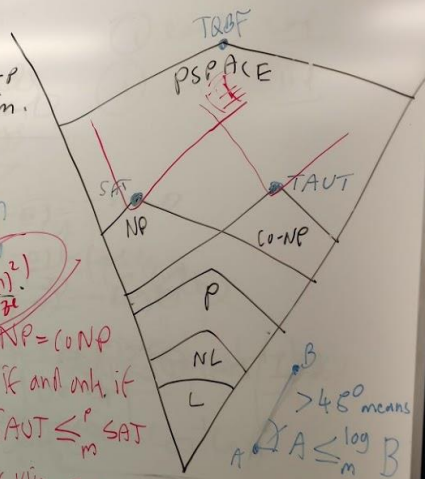 TQBF
PSPACE
m.
SAT
TAUT
NP
CO-NP
P
NP = CONP
if and only if
TAUT ≤ᵖₘ SAT
NL
L
B
>45° means
A
A ≤ˡᵒᵍₘ B